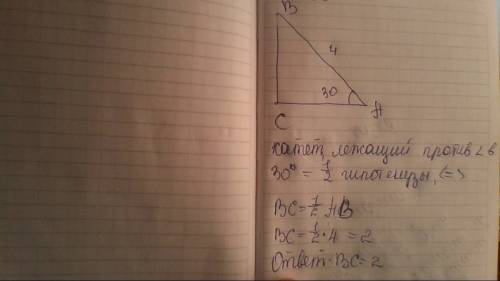 В
4
30
С
А
катет, лежащий против ∠ в
30° = 1/2 гипотенузы, (=>
BC = 1/2 AB
BC = 1/2 · 4 = 2
Ответ: BC = 2